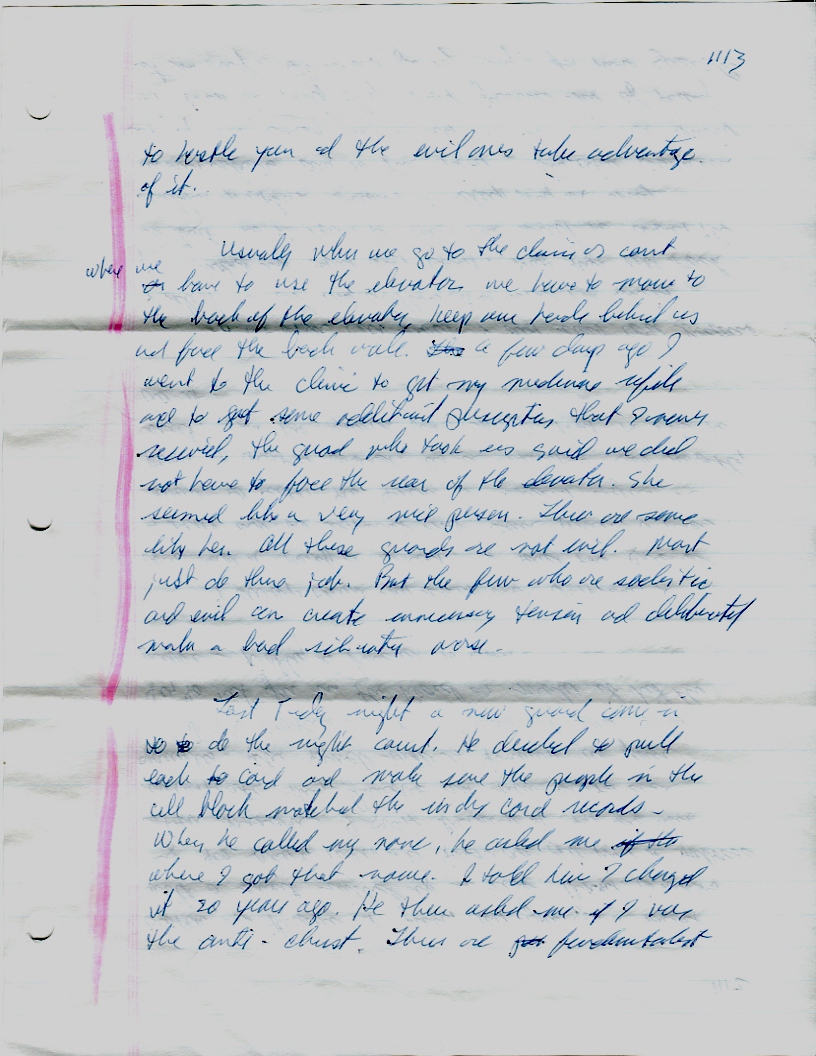 1113
to hassle you ad the evil ones take advantage
of it.
Usually when we go to the clinic or court
where we
have to use the elevators we have to move to
the back of the elevator, keep our hands behind us
ad face the back wall. a few days ago I
went to the clinic to get my medicine refills
and to get some additional that I never
received, the guard who took us said we did
not have to face the rear of the elevator. She
seemed like a very nice person. There are some
like her. All these guards are not evil. Most
just do their job. But the few who are sadistic
and evil can create unnecessary tension ad deliberately
make a bad situation worse.
Last night a new guard came in
to do the night count. He decided to pull
each card and make sure the people in the
cell block matched the card records.
When he called my name, he asked me
where I got that name. I told him I changed
it 20 years ago. He then asked me if I was
the anti-christ. There are fundamentalist